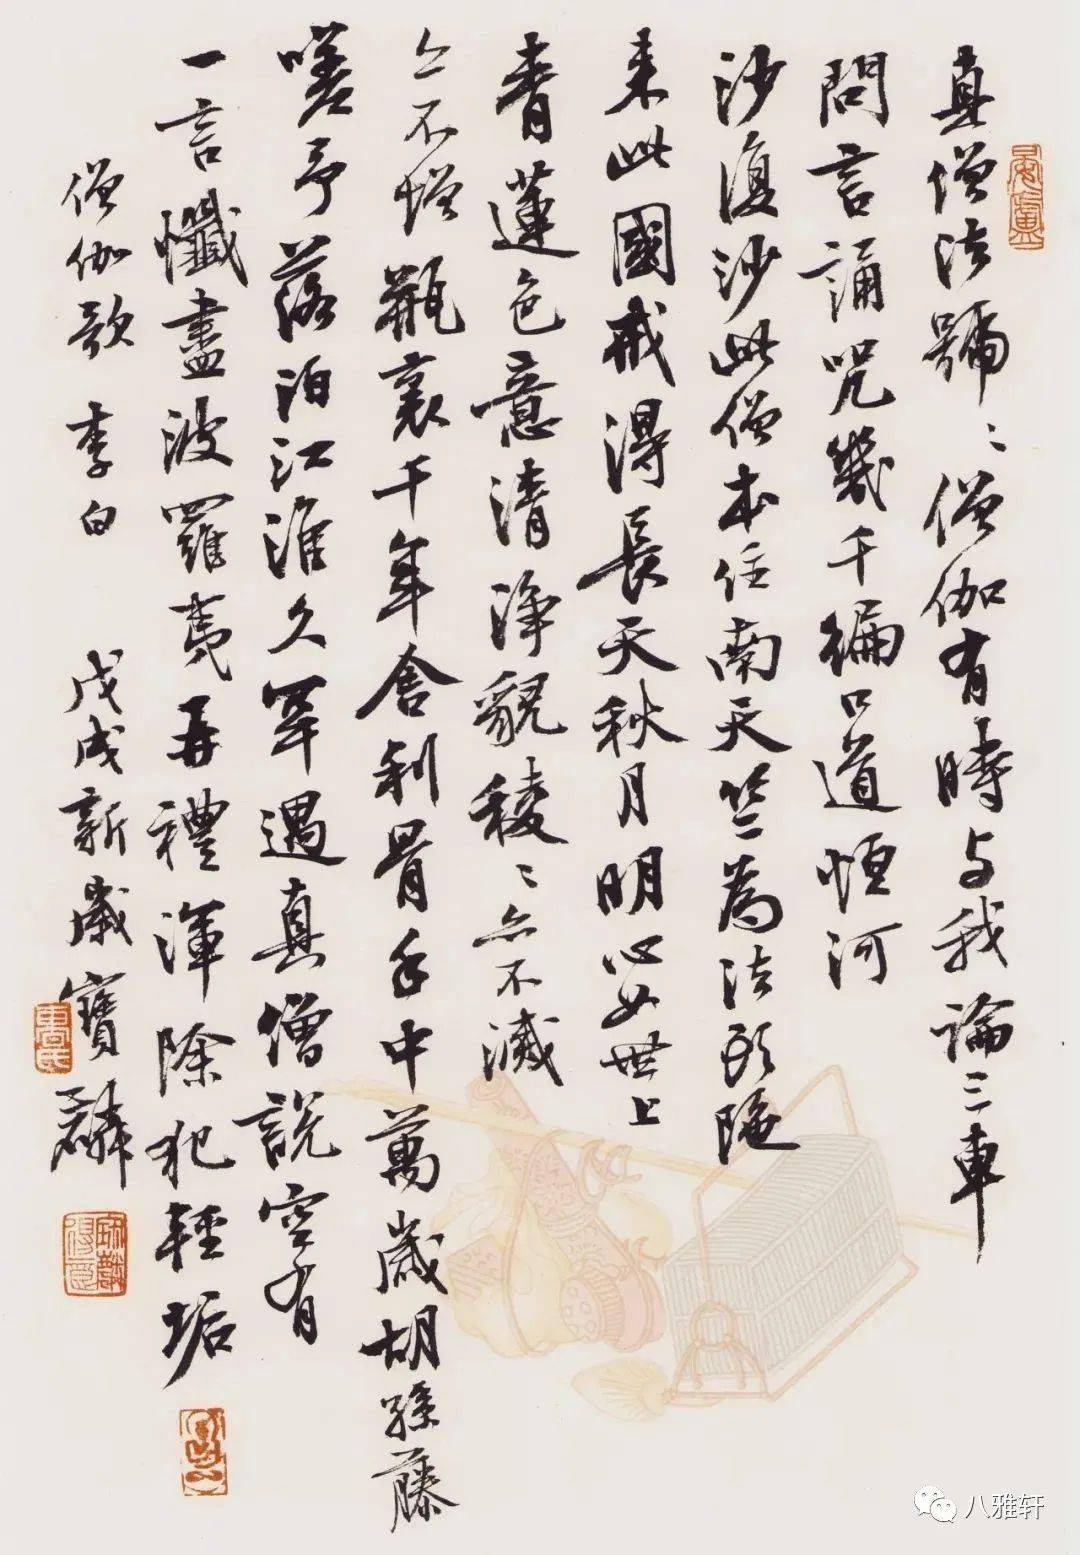 真僧法號〻僧伽有時与我論三車
問言誦咒幾千編口道恒河
沙復沙此僧本住南天竺為法頭陁
来此國戒得長天秋月明心如世上
青蓮色意清淨貌稜〻亦不減
亦不增瓶裏千年舍利骨手中萬歲胡孫藤
嗟予落泊江淮久罕遇真僧說空有
一言懺盡波羅夷再禮渾除犯輕垢
僧伽歌 李白 戊戌新歲寶麟
八雅轩